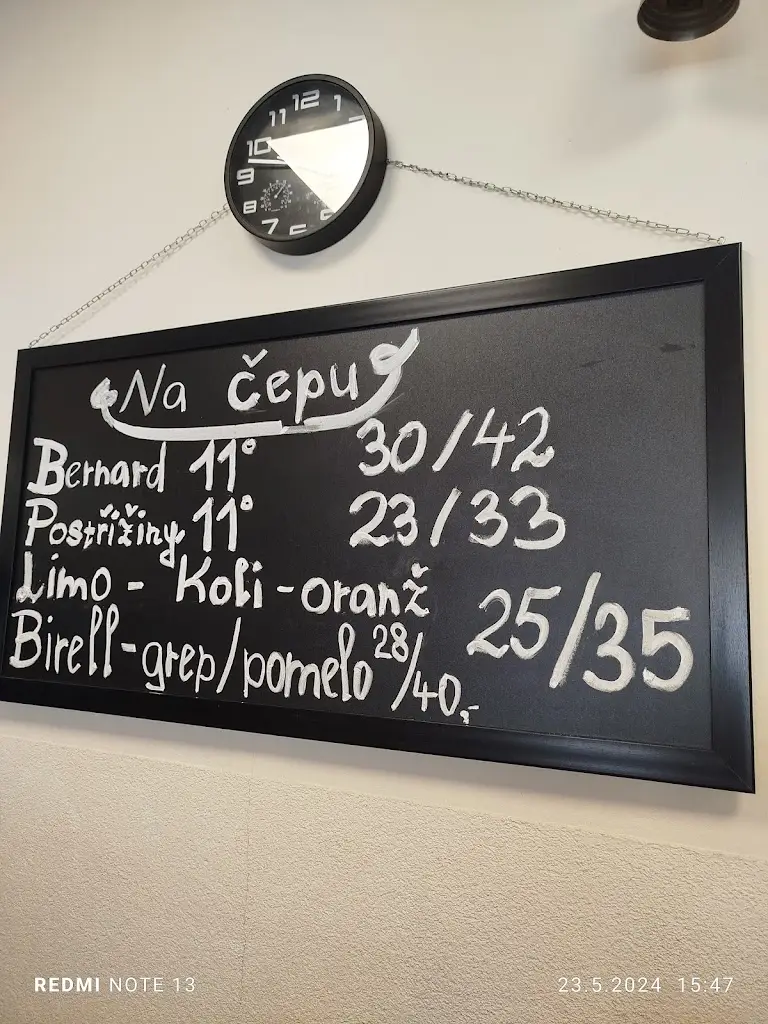 12
1
11
10
9
8
7
Na čepu
Bernard 11° 30/42
Postřižiny 11° 23/33
Limo - Koli - oranž 25/35
Birell - grep/pomelo 28/40,-
REDMI NOTE 13
23.5.2024 15:47